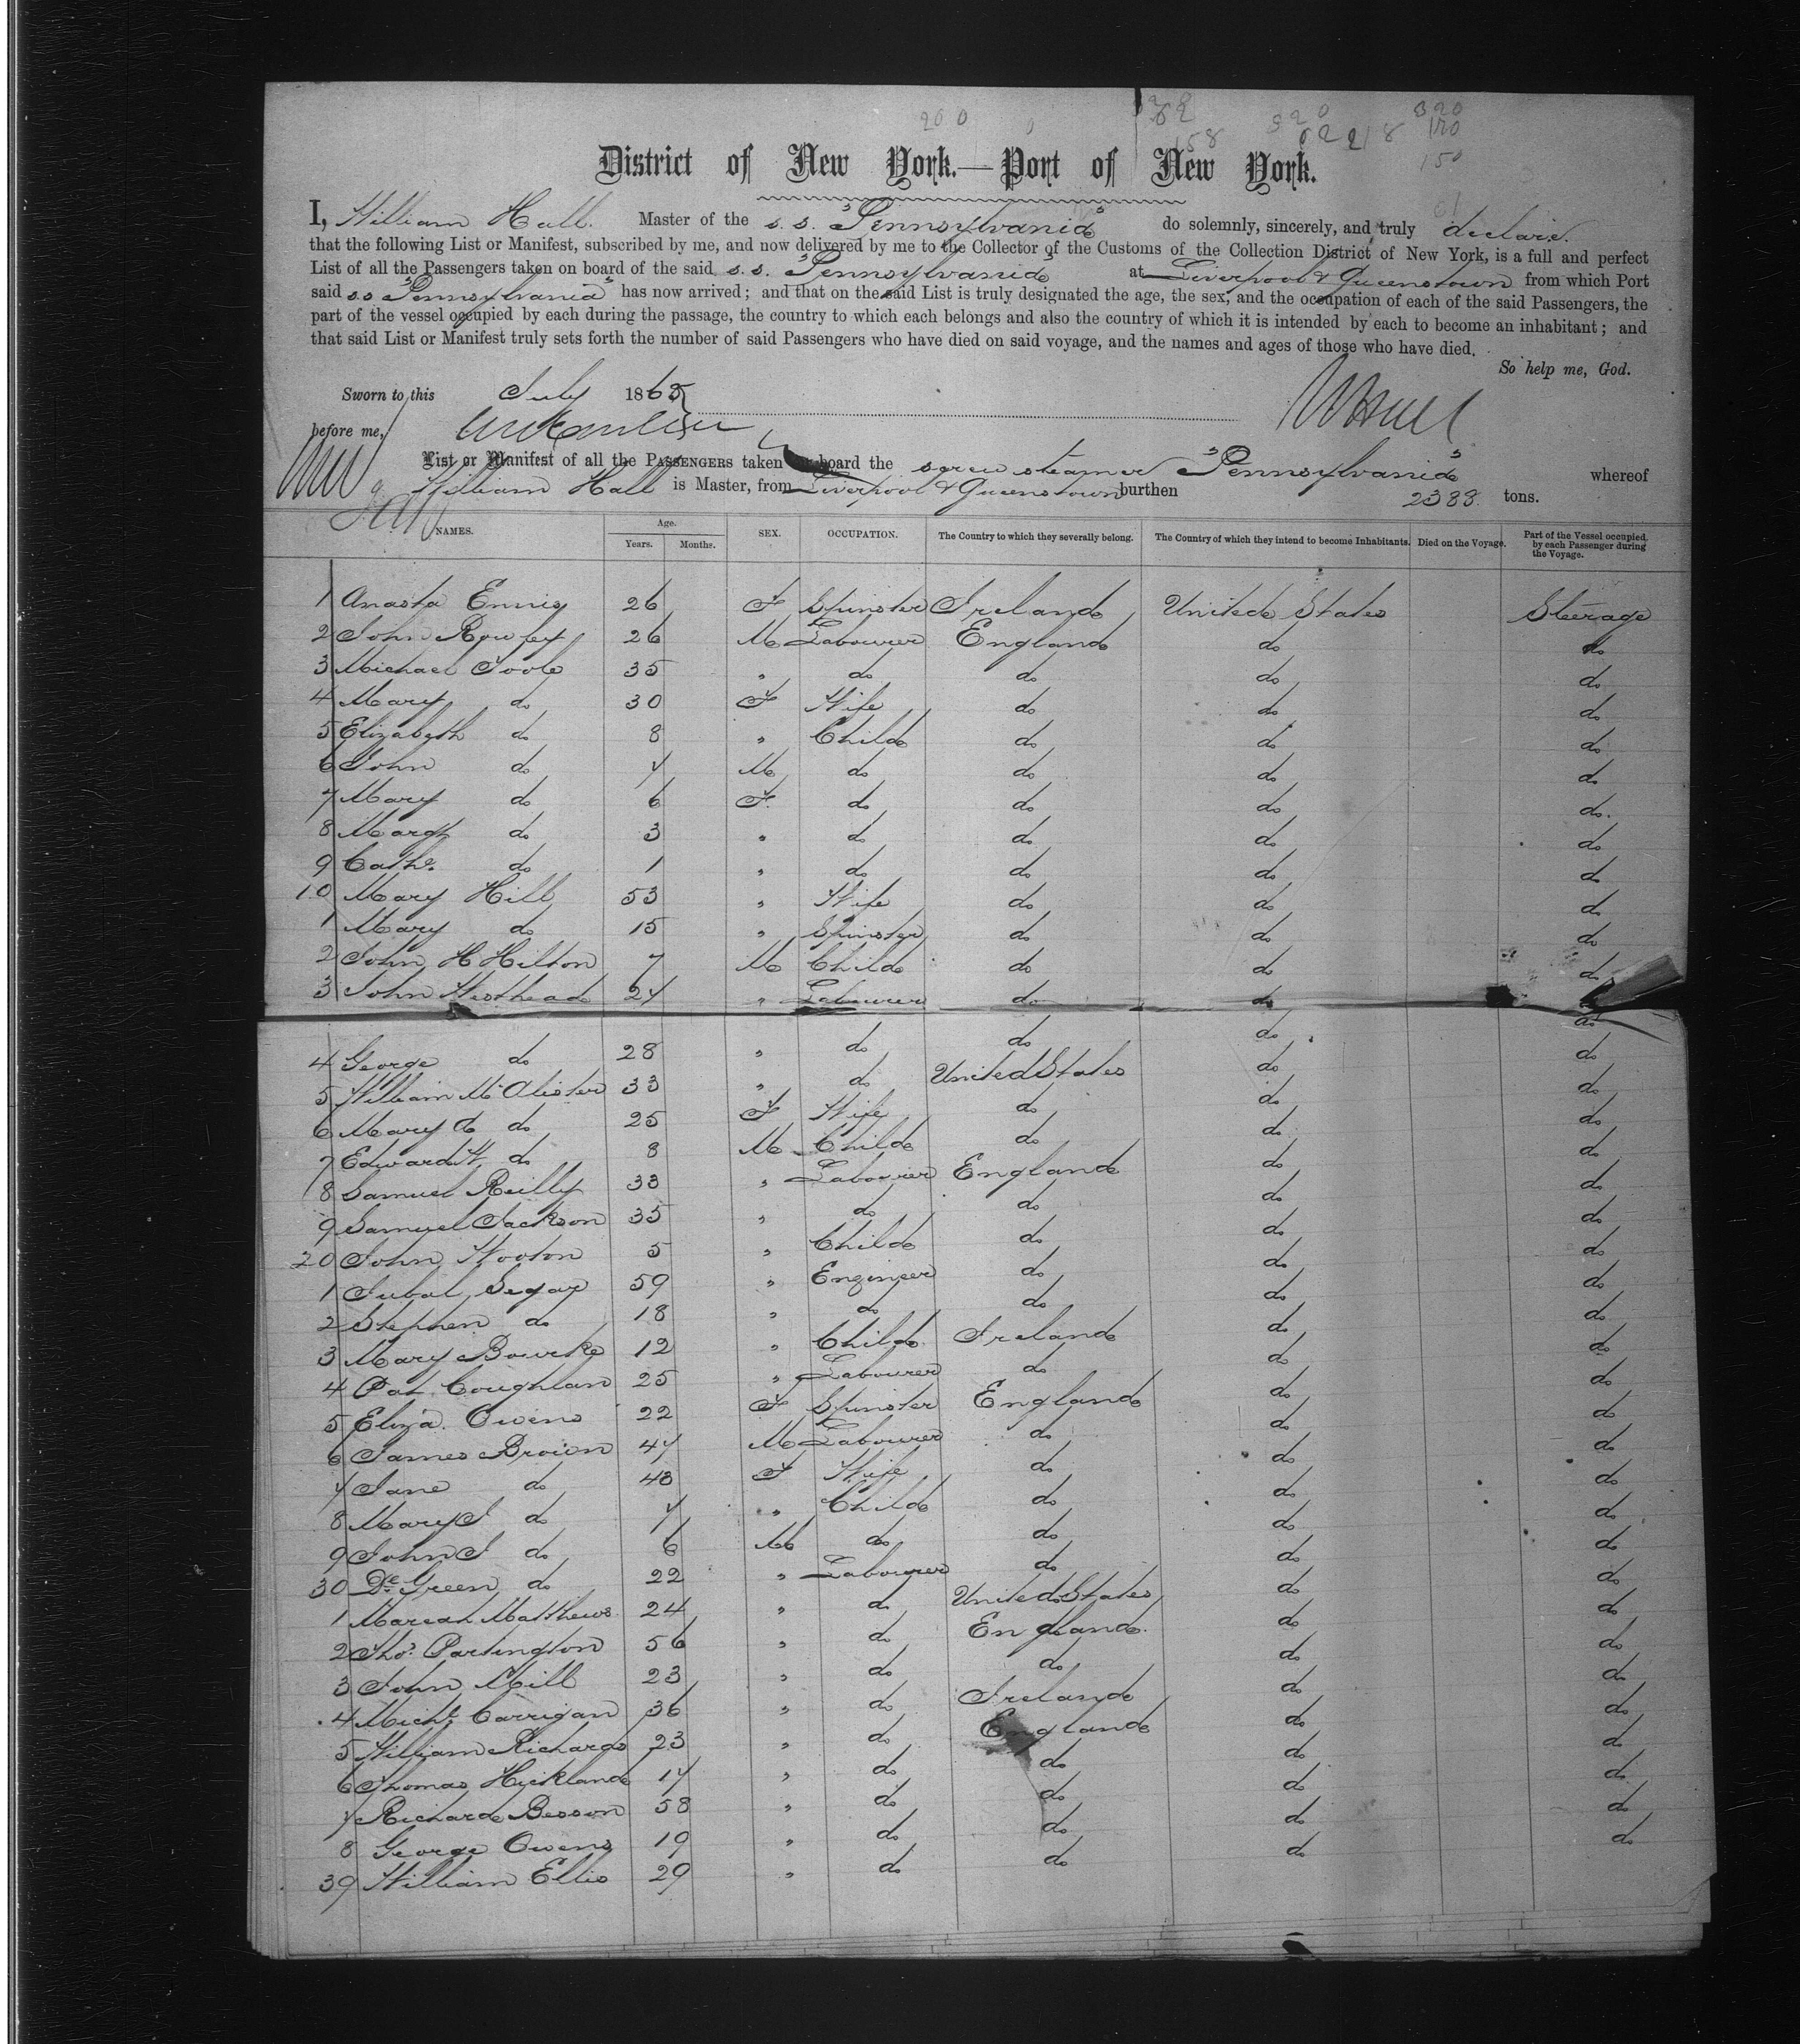 District of New York.—Port of New York.
I, William Hall. Master of the s.s. "Pennsylvania" do solemnly, sincerely, and truly declare.
that the following List or Manifest, subscribed by me, and now delivered by me to the Collector of the Customs of the Collection District of New York, is a full and perfect
List of all the Passengers taken on board of the said s.s. "Pennsylvania" at Liverpool & Queenstown from which Port
said s.s "Pennsylvania" has now arrived; and that on the said List is truly designated the age, the sex, and the occupation of each of the said Passengers, the
part of the vessel occupied by each during the passage, the country to which each belongs and also the country of which it is intended by each to become an inhabitant; and
that said List or Manifest truly sets forth the number of said Passengers who have died on said voyage, and the names and ages of those who have died.
So help me, God.
Sworn to this July 1865
before me,
List or Manifest of all the PASSENGERS taken on board the screw steamer "Pennsylvania" whereof
William Hall is Master, from Liverpool & Queenstown burthen 2388 tons.
NAMES. Age. Years. Months. SEX. OCCUPATION. The Country to which they severally belong. The Country of which they intend to become Inhabitants. Died on the Voyage. Part of the Vessel occupied by each Passenger during the Voyage.
1 Anasta Ennis 26 F Spinster Ireland United States Steerage
2 John Rowley 26 M Labourer England do do
3 Michael Toole 35 " do do do do
4 Mary do 30 F Wife do do do
5 Elizabeth do 8 " Child do do do
6 John do 7 M do do do do
7 Mary do 6 F. do do do do.
8 Margt do 3 " do do do do
9 Cathe. do 1 " do do do do
10 Mary Hill 53 " Wife do do do
1 Mary do 15 " Spinster do do do
2 John H Hilton 7 M Child do do do
3 John Westhead 24 " Labourer do do do
4 George do 28 " do do do do
5 William McAlister 33 " do United States do do
6 Mary A do 25 F Wife do do do
7 Edward W do 8 M Child do do do
8 Samuel Reilly 33 " Labourer England do do
9 Samuel Jackson 35 " do do do do
20 John Wooton 5 " Child do do do
1 Jubal Segar 59 " Engineer do do do
2 Stephen do 18 " do do do do
3 Mary Bourke 12 " Child Ireland do do
4 Pat Coughlan 25 " Labourer do do do
5 Eliza. Owens 22 F Spinster England do do
6 James Brown 47 M Labourer do do do
7 Jane do 48 F Wife do do do
8 Mary J do 7 " Child do do do
9 John J do 6 M do do do do
30 De Green do 22 " Labourer do do do
1 Mariah Matthews 24 " do United States do do
2 Thos. Partington 56 " do England. do do
3 John Mill 23 " do do do do
4 Michl. Carrigan 36 " do Ireland do do
5 William Richards 23 " do England do do
6 Thomas Hickland 17 " do do do do
7 Richard Besson 58 " do do do do
8 George Owens 19 " do do do do
39 William Ellis 29 " do do do do